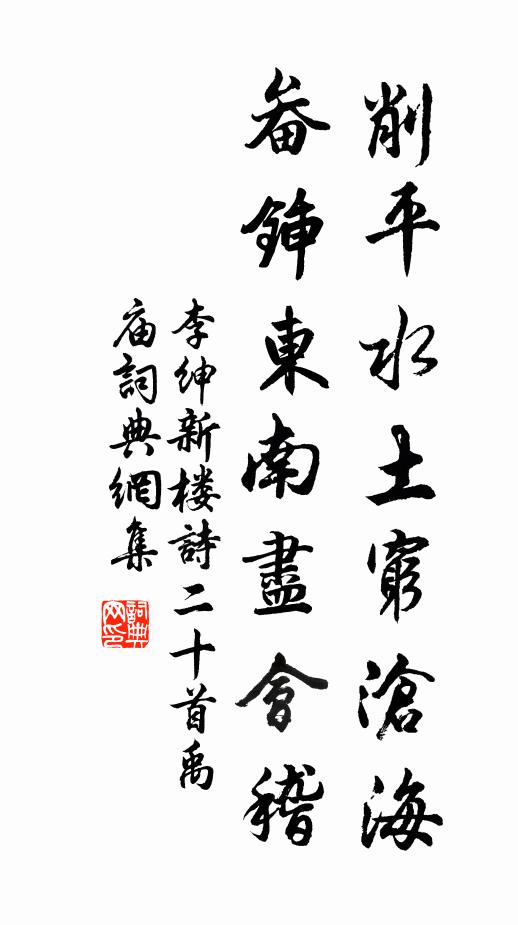 削平水土窮滄海
畚鍤東南盡會稽
李紳新楼詩二十首禹
庙詞典網集
詞典
网印